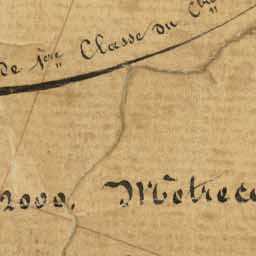 de 1ère Classe du
2000. Mètre